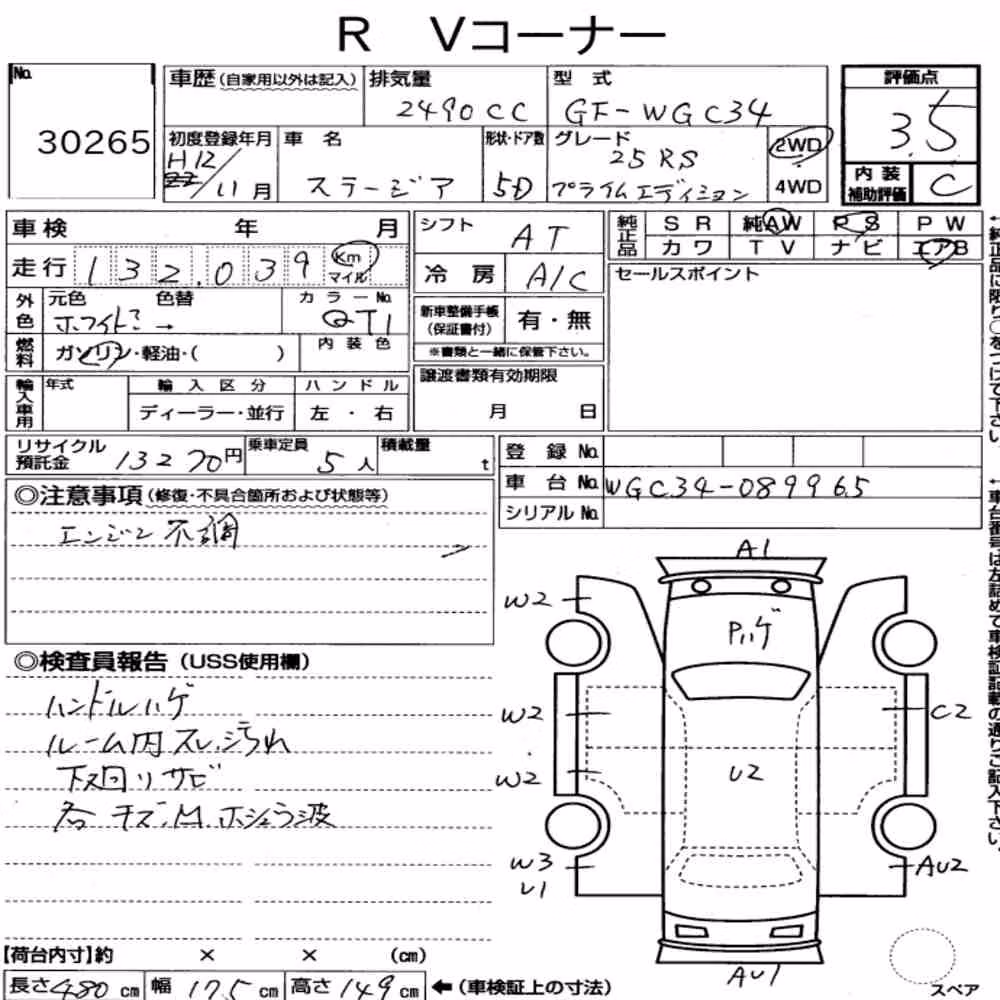 R Vコーナー
No.
30265
車歴(自家用以外は記入)
排気量
2490CC
型 式
GF-WGC34
評価点
3.5
初度登録年月
H12/11月
車 名
ステージア
形状・ドア数
5D
グレード
25RS
プライムエディション
2WD
4WD
内 装
補助評価
C
車検 年 月
走行 132,039 Km
マイル
シフト
AT
冷 房
A/C
純正品
S R 純AW R S P W
カ ワ T V ナ ビ エアB
セールスポイント
外色
元色 色替
ホワイト? →
カ ラ ー No.
QT1
燃料
ガソリン・軽油・( )
内 装 色
新車整備手帳
(保証書付)
有・無
※書類と一緒に保管下さい。
輸入車用
年式
輸 入 区 分
ディーラー・並行
ハ ン ド ル
左 ・ 右
譲渡書類有効期限
月 日
リサイクル
預託金
13270円
乗車定員
5人
積載量
t
登 録 No.
車 台 No. WGC34-089965
シリアル No.
◎注意事項(修復・不具合箇所および状態等)
エンジン不調
◎検査員報告(USS使用欄)
ハンドルハゲ
ルーム内スレ、汚れ
下回りサビ
各キズ、凹、ボンネット波
A1
W2
Pハゲ
W2
C2
W2
U2
W3
U1
AU2
AU1
スペア
【荷台内寸】約 × × (cm)
長さ480cm 幅175cm 高さ149cm ←(車検証上の寸法)
←純正品に限り○をつけて下さい。
←車台番号は左詰めで車検証記載の通りご記入下さい。